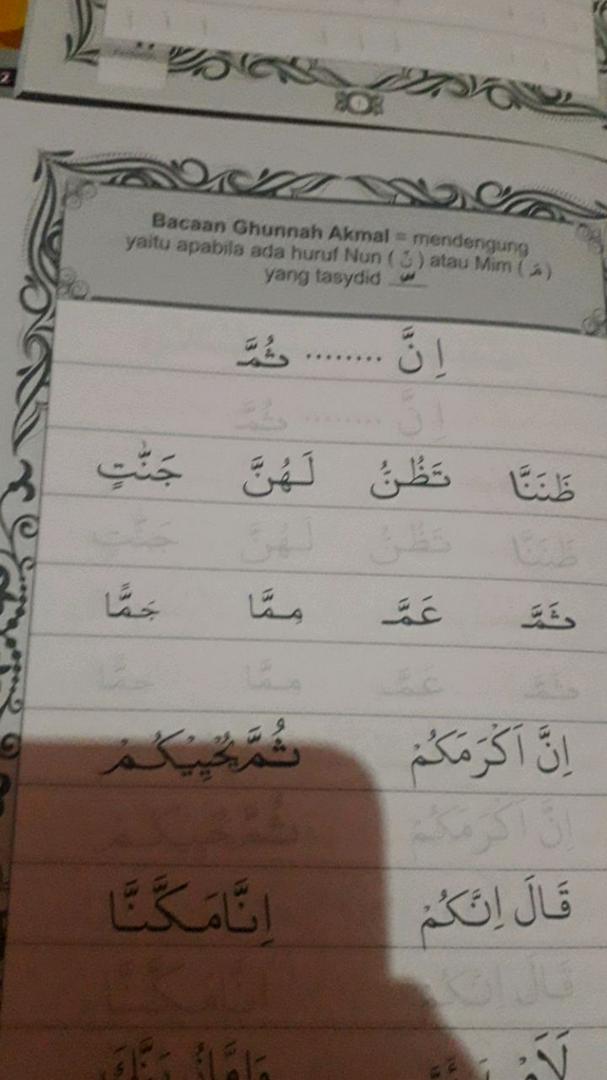 2
Bacaan Ghunnah Akmal = mendengung
yaitu apabila ada huruf Nun ( نّ ) atau Mim ( مّ )
yang tasydid ـّ
اِنَّ ········ ثُمَّ
اِنَّ ········ ثُمَّ
ظَنَنَّا تَظُنُّ لَهُنَّ جَنّٰتٍ
ظَنَنَّا تَظُنُّ لَهُنَّ جَنّٰتٍ
ثَمَّ عَمَّ مِمَّا جَمًّا
ثَمَّ عَمَّ مِمَّا جَمًّا
اِنَّ اَكْرَمَكُمْ ثُمَّ يُحْيِيْكُمْ
اِنَّ اَكْرَمَكُمْ ثُمَّ يُحْيِيْكُمْ
قَالَ اِنَّكُمْ اِنَّا مَكَّنَّا
قَالَ اِنَّكُمْ اِنَّا مَكَّنَّا